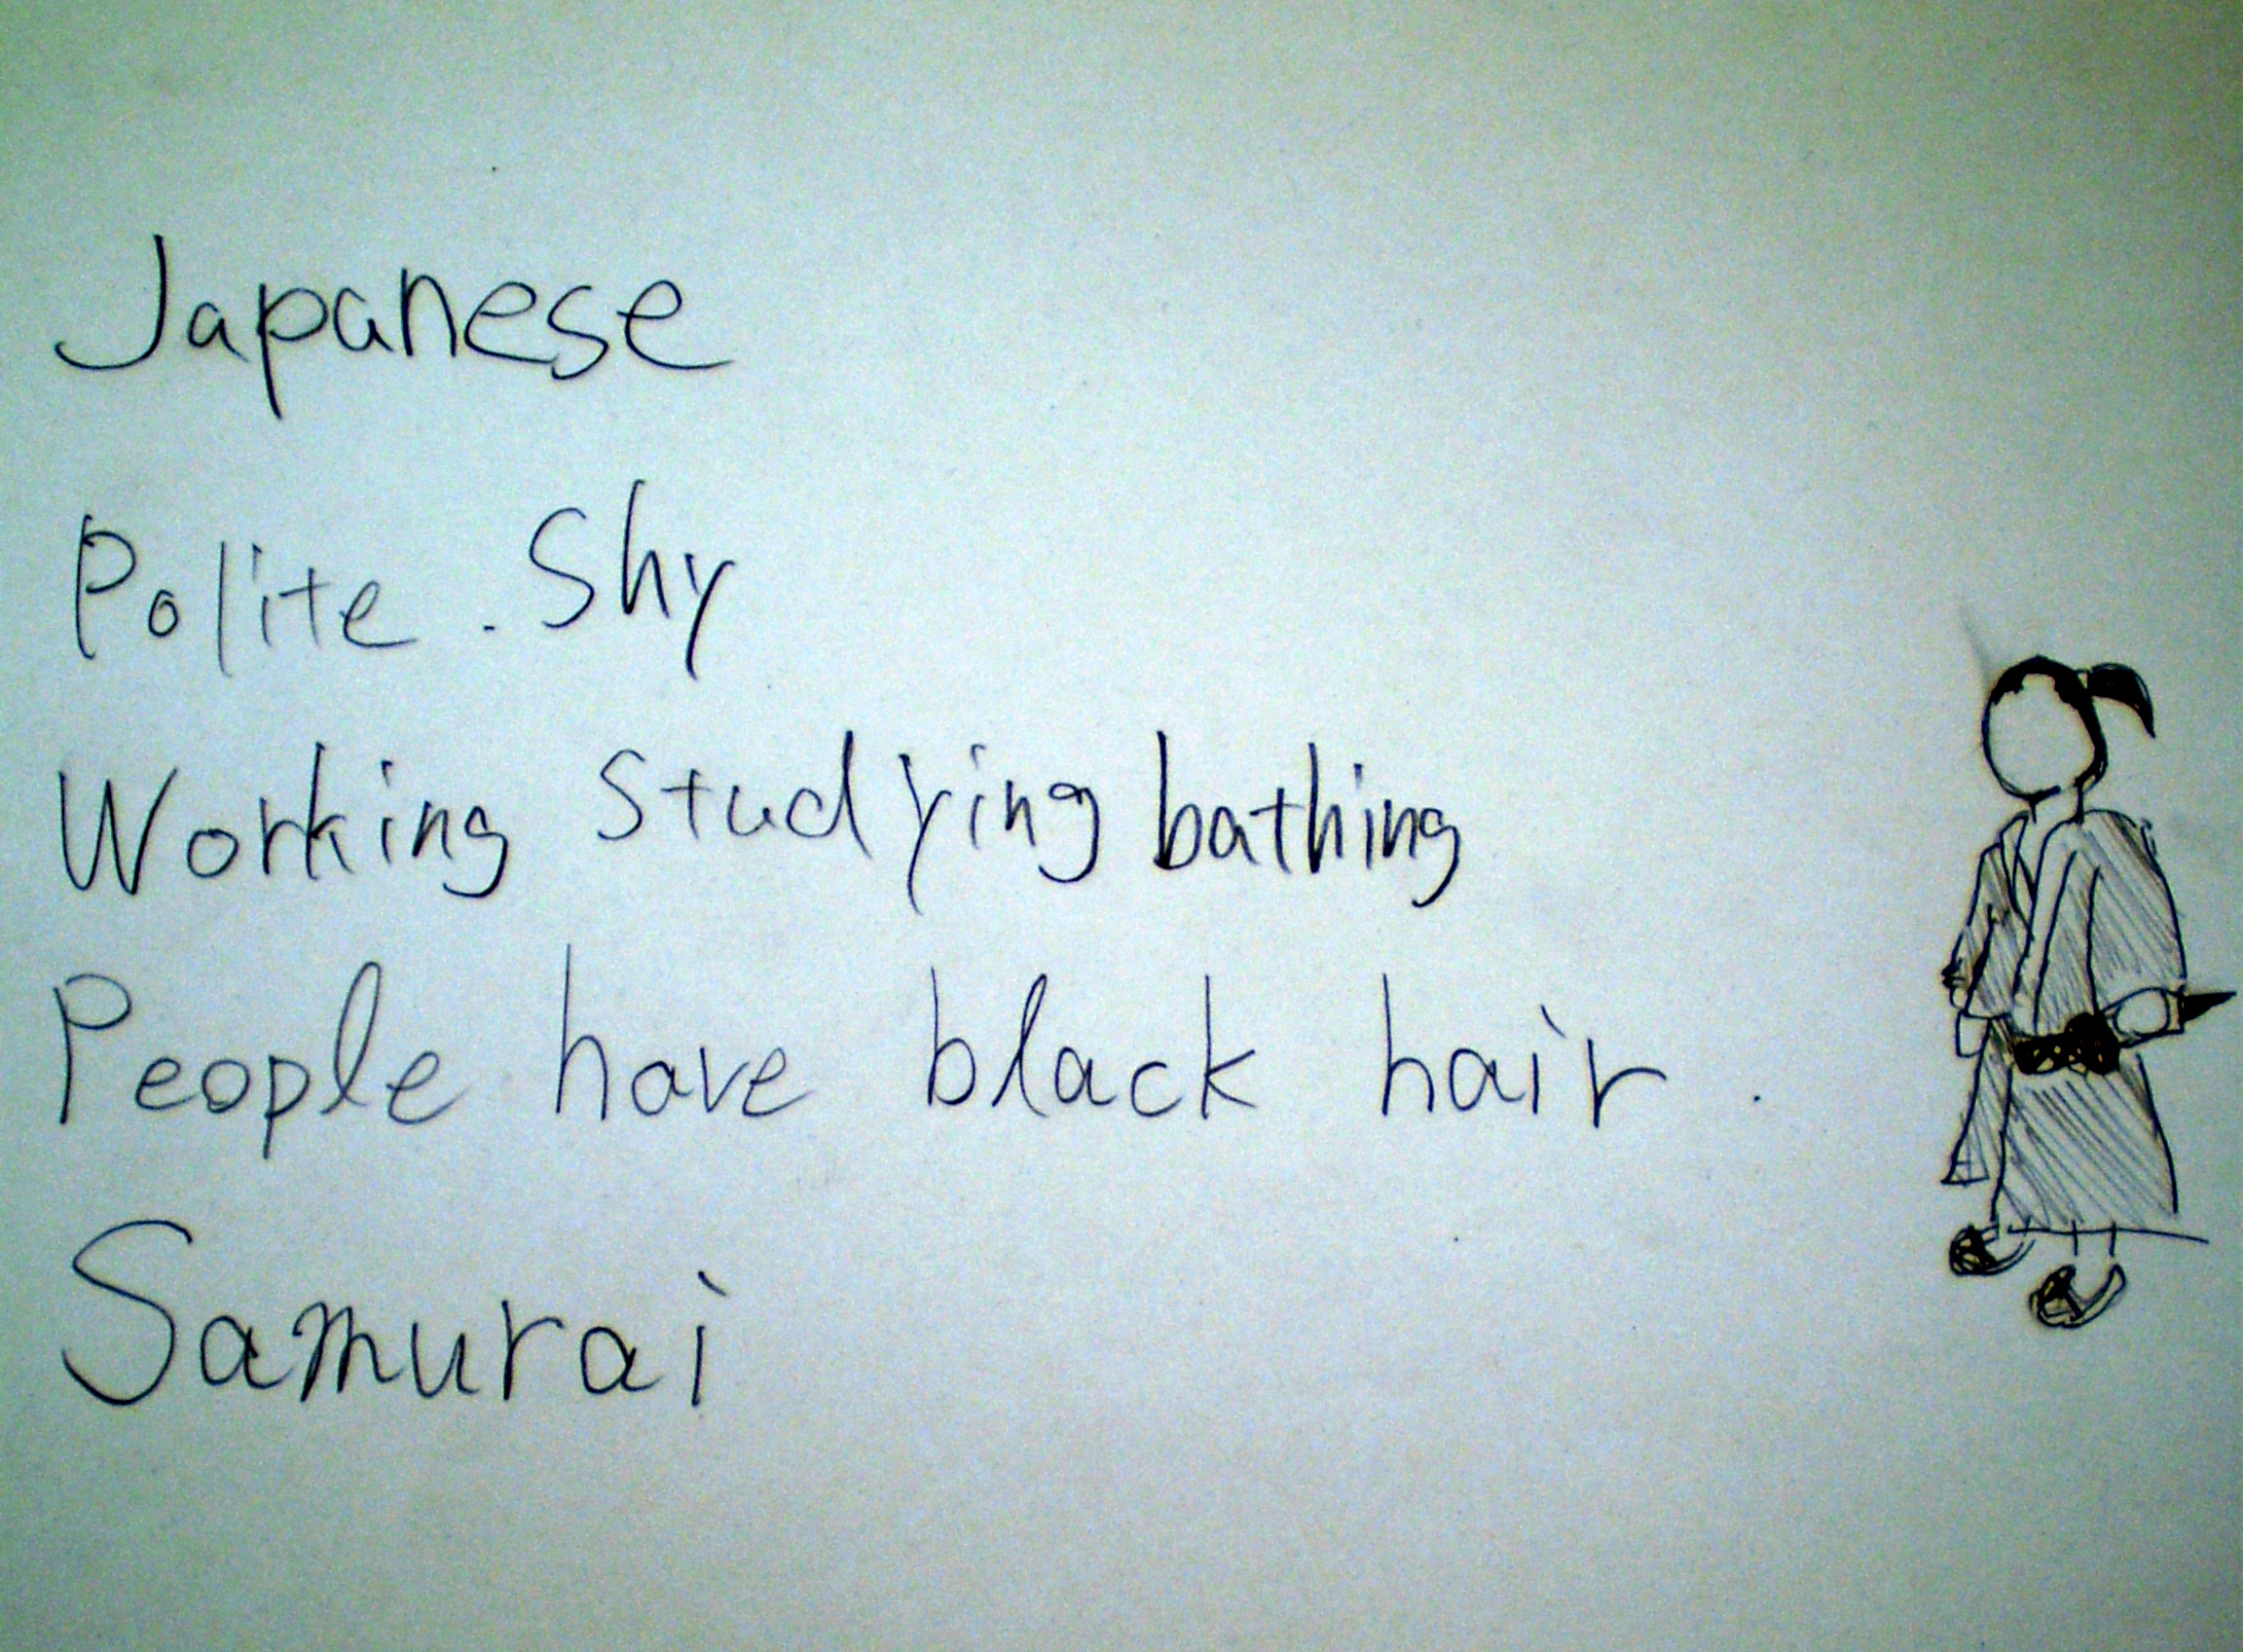 Japanese
Polite . Shy
Working studying bathing
People have black hair .
Samurai